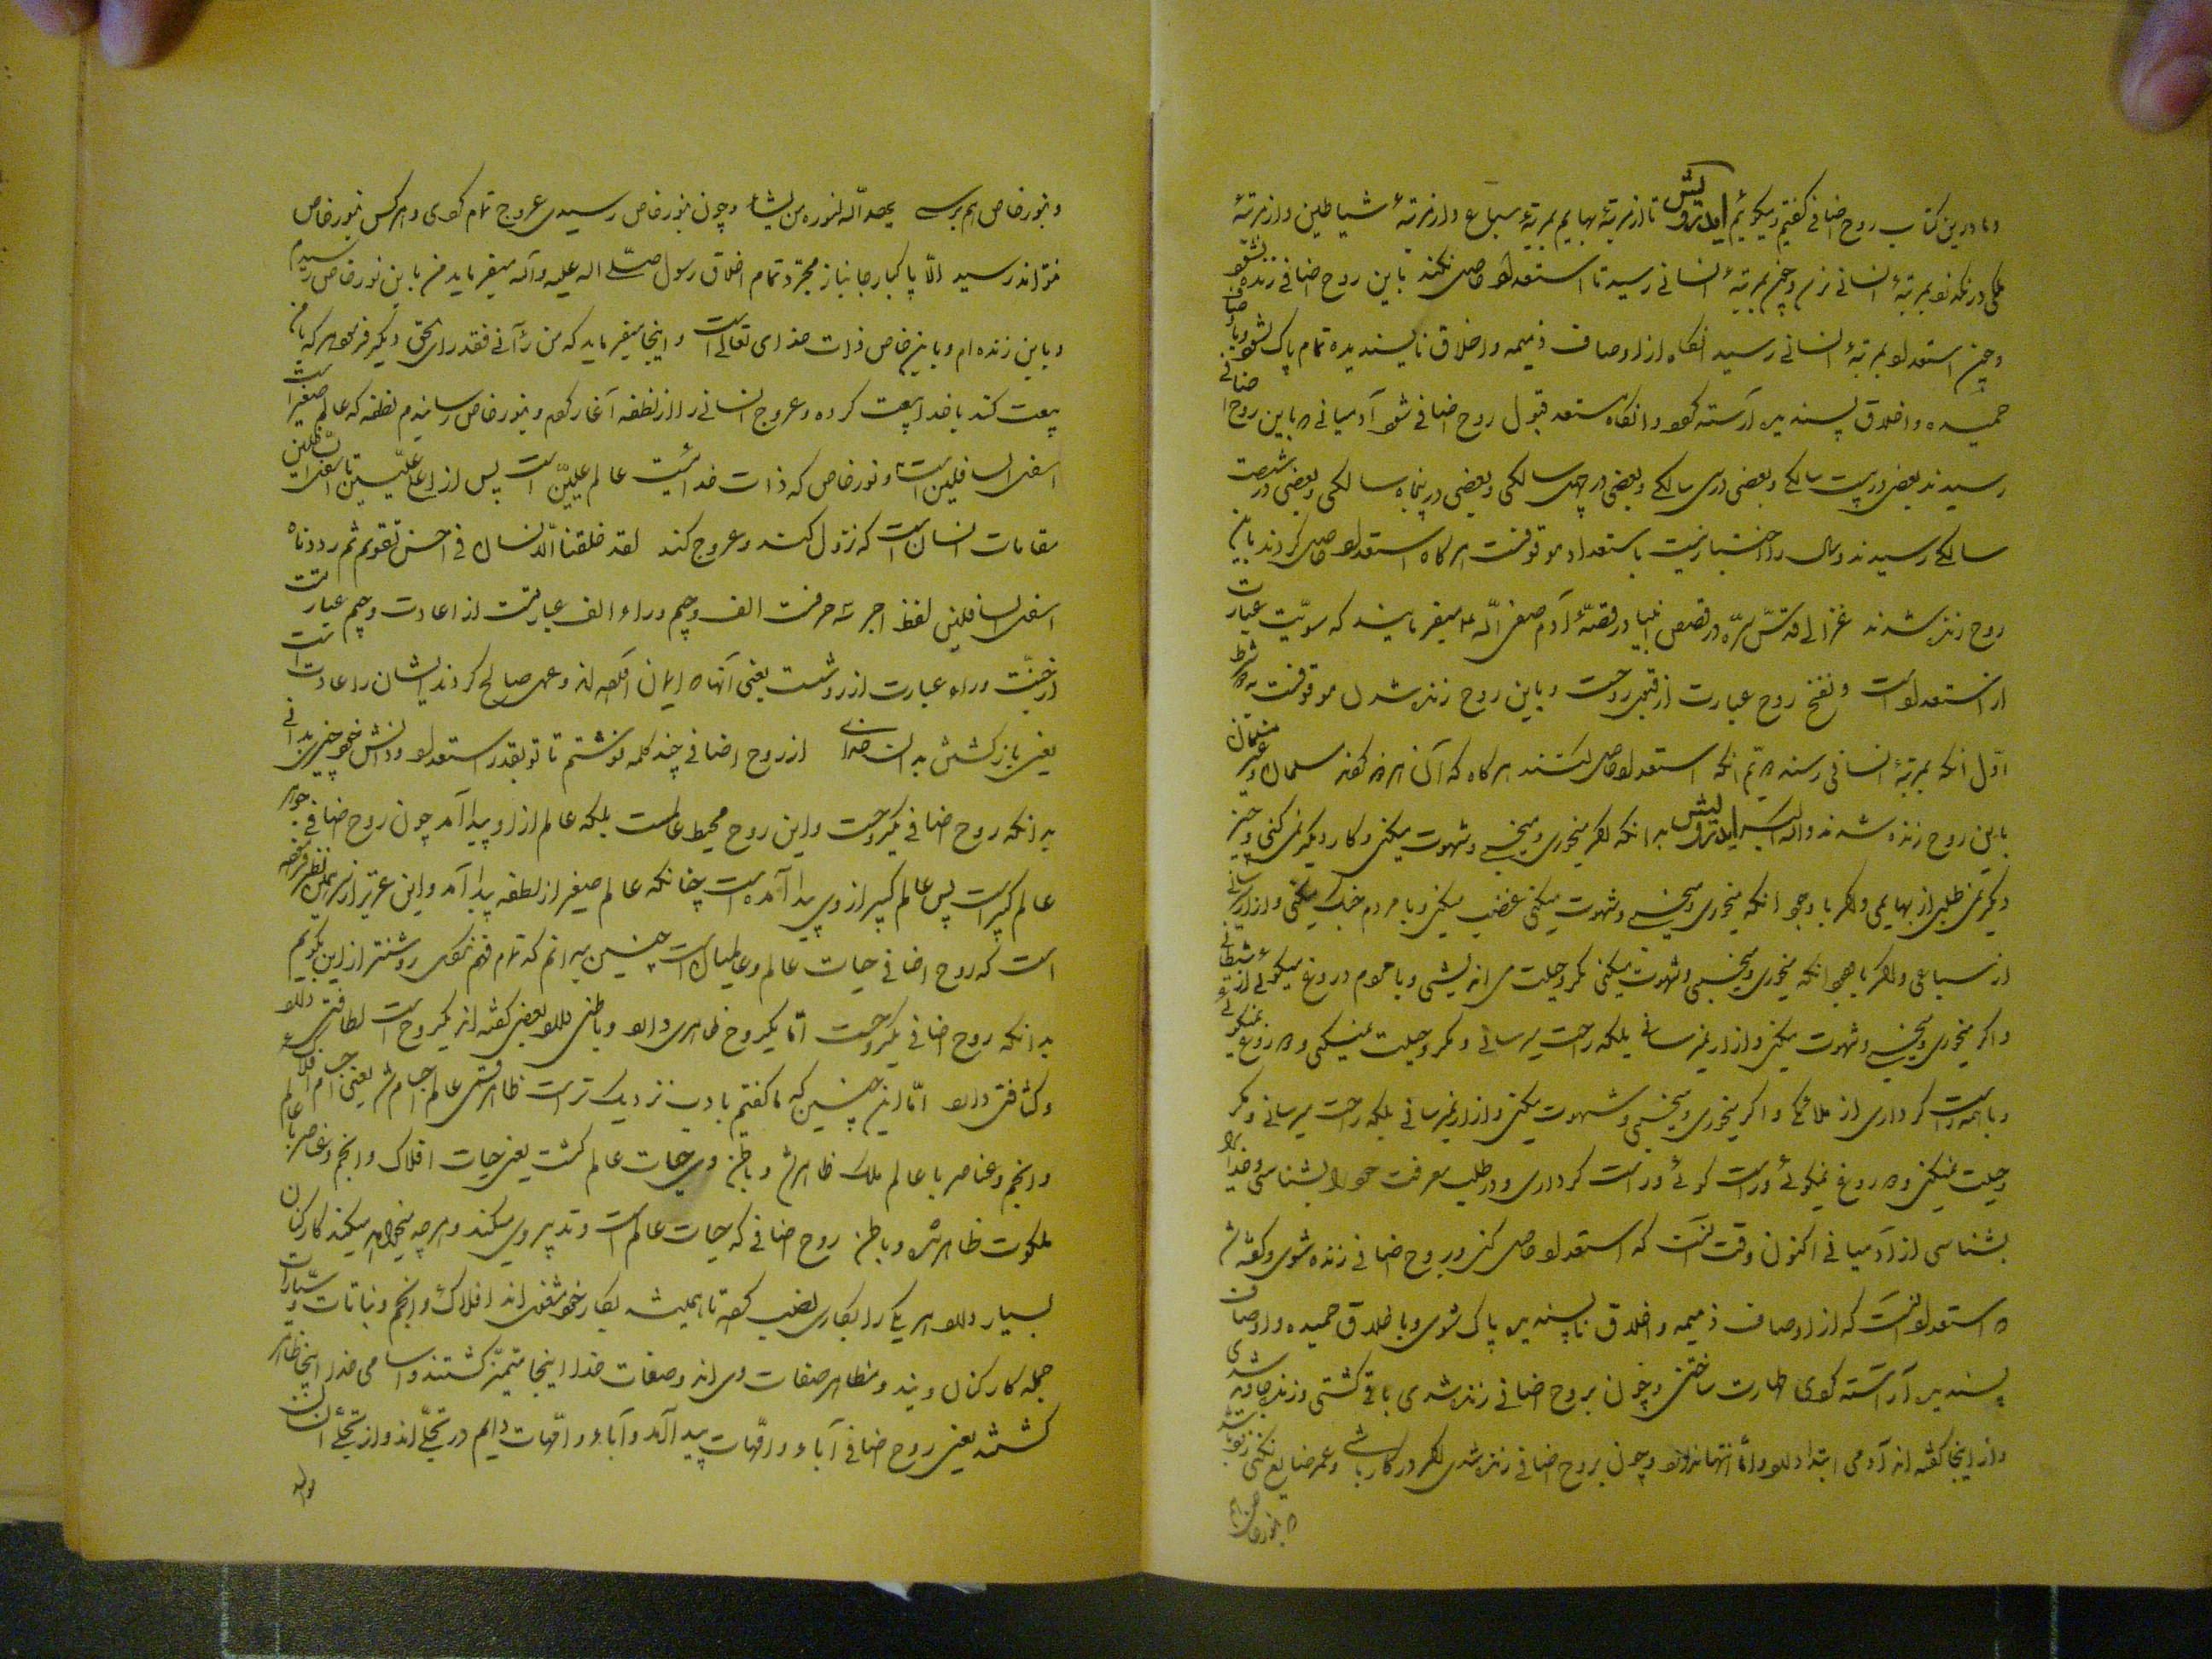 و ما درین کتاب روح اضافی گفتیم و میگوئیم ای درویش تا از مرتبهٔ بهایم بمرتبهٔ سباع و از مرتبهٔ شیاطین و از مرتبهٔ
ملکی در نگذرد بمرتبهٔ انسانی نرسد و چون بمرتبهٔ انسانی رسید تا استعداد حاصل نکند باین روح اضافی زنده نشود
و چون استعداد بمرتبهٔ انسانی رسید آنگاه از اوصاف ذمیمه و اخلاق ناپسندیده تمام پاک شود و باوصاف
حمیده و اخلاق پسندیده آراسته گردد و آنگاه مستعد قبول روح اضافی شود آدمیانی که باین روح اضافی
رسیدند بعضی در بیست سالگی و بعضی در سی سالگی و بعضی در چهل سالگی و بعضی در پنجاه سالگی و بعضی در شصت
سالگی رسیدند و سال را اختیار نیست باستعداد موقوفست هرگاه استعداد حاصل کردند باین
روح زنده شدند غزالی قدّس سرّه در قصص انبیا در قصّهٔ آدم صفی الّه ع میفرمایند که سویّت عبارت
از استعداد است و نفخ روح عبارت از قبول روحست و باین روح زنده شدن موقوفست بدو شرط
اوّل آنکه بمرتبهٔ انسانی رسند دوّم آنکه استعداد حاصل کنند هرگاه که آن هر دو کردند مسلمان و غیر مسلمان
باین روح زنده شدند ای درویش بدانکه اگر میخوری و میخسبی و شهوت میکنی و کار دیگر نمی کنی و چیز
دیگر نمی طلبی از بهایمی و اگر با وجود آنکه میخوری و میخسبی و شهوت میکنی غضب میکنی و با مردم جنگ میکنی و آزار میرسانی
از سباعی و اگر با وجود آنکه میخوری و میخسبی و شهوت میکنی مکر و حیلت می اندیشی و با مردم دروغ میگوئی از شیطانی
و اگر میخوری و میخسبی و شهوت میکنی و آزار نمیرسانی بلکه راحت میرسانی و مکر و حیلت نمیکنی و دروغ نمیگوئی
و با همه راست کرداری از ملائکی و اگر میخوری و میخسبی و شهوت میکنی و آزار نمیرسانی بلکه راحت میرسانی و مکر
و حیلت نمیکنی و دروغ نمیگوئی و راست گوئی و راست کرداری و در طلب معرفت خود را بشناسی و خدا را
بشناسی از آدمیانی اکنون وقت آنست که استعداد حاصل کنی و بروح اضافی زنده شوی و گفته شد
که استعداد آنست که از اوصاف ذمیمه و اخلاق ناپسندیده پاک شوی و باخلاق حمیده و اوصاف
پسندیده آراسته گردی طهارت ساختی و چون بروح اضافی زنده شدی باقی گشتی و زنده جاوید شدی
و از اینجا گفته اند آدمی ابتدا دارد و امّا انتها ندارد و چون بروح اضافی زنده شدی اگر در کار باشی و عمر ضایع نکنی
که بنور خاص هم
و بنور خاص هم برسی یهد الّه لنوره من یشاء و چون بنور خاص رسیدی عروج تمام کردی و هر کس بنور خاص
نتواند رسید الّا پاکباز جانباز مجرّد تمام اخلاق رسول صلّی اله علیه و آله میفرماید من باین نور خاص رسیدم
و باین زنده ام و این خاص ذات خدای تعالی است و اینجا میفرماید که من رآنی فقد رای الحق و دیگر فرمود هر که با من
بیعت کند با خدا بیعت کرده و عروج انسانی را از نطفه آغاز کردم و بنور خاص رسانیدم نطفه که عالم صغیر است
اسفل السافلین است و نور خاص که ذات خدائیست عالم علیّین است پس از اعلا علیّین تا اسفل السافلین
مقامات انسان است که نزول کند و عروج کند لقد خلقنا الانسان فی احسن تقویم ثم رددناه
اسفل السافلین لفظ اجر سه حرفست الف و جیم و راء الف عبارتست از اعادت و جیم عبارتست
از جنّت و راء عبارت از رویتست یعنی آنها که ایمان آورده اند و عمل صالح کردند ایشان را اعادت است
یعنی بازگشتن از روح اضافی چند کلمه نوشتم تا تو بقدر استعداد و دانش خود چیزی بدانی
بدانکه روح اضافی یک روحست و این روح محیط عالمست بلکه عالم از او پیدا آمد چون روح اضافی جوهر
عالم کبیر است پس عالم کبیر از وی پیدا آمده است چنانکه عالم صغیر از نطفه پیدا آمد و این عزیز از سر همین نظر فرموده
است که روح اضافی حیات عالم و عالمیان است چنین میدانم که تمام فهم نکردی روشنتر ازین بگویم
بدانکه روح اضافی یک روحست امّا یک روح ظاهری دارد و باطنی دارد بعضی گفته اند یک روح است لطافتی دارد
و کثافتی دارد امّا اینچنین که ما گفتیم بادب نزدیک ترست ظاهرش عالم اجسام شد یعنی اجسام افلاک
و انجم و عناصر با عالم ملک ظاهرش و باطن وی حیات عالم گشت یعنی حیات افلاک و انجم و عناصر با عالم
ملکوت ظاهر شد و باطن روح اضافی که حیات عالم است و تدبیر وی میکند و هر چه میخواهد میکند کارکنان
بسیار دارد هر یکی را بکاری نصب کرده تا همیشه بکار خود مشغول اند افلاک و انجم و نباتات و سیّارات
جمله کارکنان ویند و مظاهر صفات وی اند و صفات خدا اینجا متمیّز گشتند و اسامی خدا اینجا ظاهر
گشته یعنی روح اضافی آباء و امّهات پیدا آمد و آباء و امّهات دایم در تجلّی اند و از تجلّی